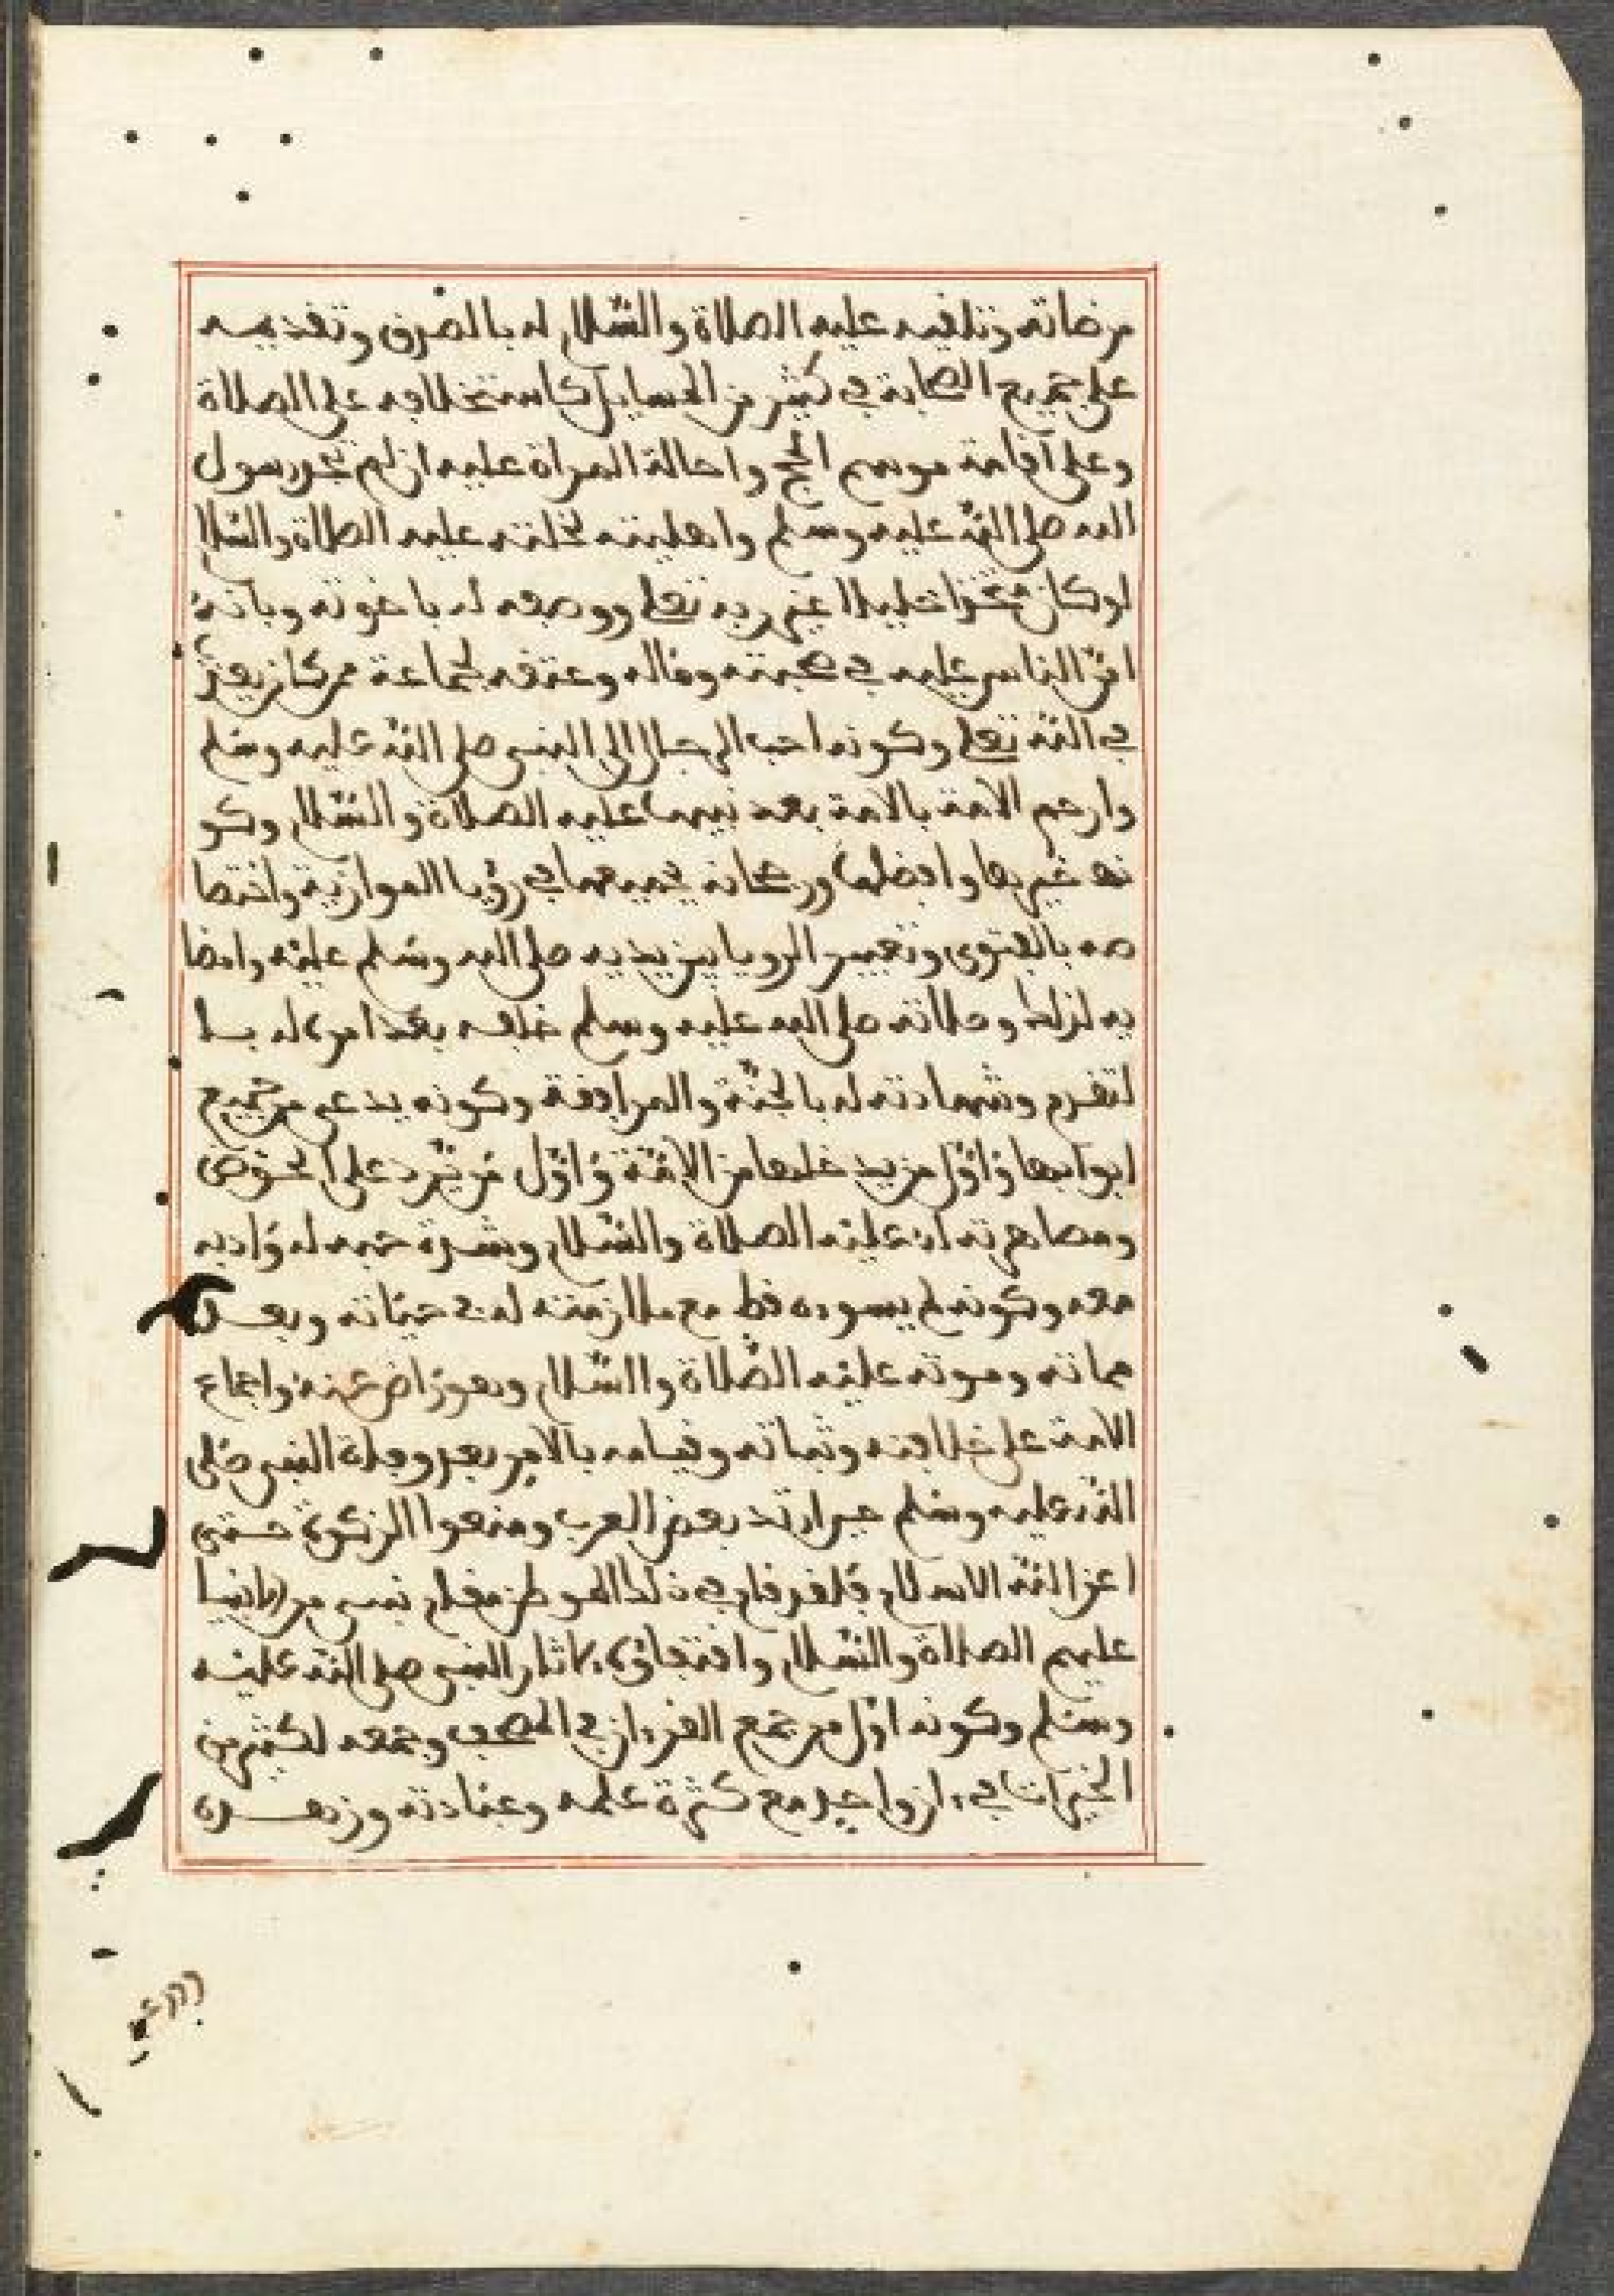 مرضاته وتلقيه عليه الصلاة والسلام له بالصدق وتقديمه
على جميع الصحابة في كثير من المسايل كاستخلافه على الصلاة
وعلى اقامة موسم الحج واحالة المراة عليه ان لم تجد رسول
الله صلى الله عليه وسلم واهليته لخلته عليه الصلاة والسلا
لو كان متخذا خليلا غير ربه تعلى ووصفه له باخوته وبانه
امن الناس عليه في صحبته وماله وعتقه لجماعة ممن كان يعذب
في الله تعلى وكونه احب الرجال الى النبي صلى الله عليه وسلم
وارحم الامة بالامة بعد نبيها عليه الصلاة والسلام وكو
نه خيرها وافضلها ورجحانه بجميعها في رؤيا الموازنة واختصا
صه بالفتوى وتعبير الرويا بين يديه صلى الله وسلم عليه وامضا
يه لذلك وصلاته صلى الله عليه وسلم خلفه بعد امره له بـا
لتقدم وشهادته له بالجنة والمرافقة وكونه يدعى من جميع
ابوابها واول من يدخلها من الامة واول من يرد على الحوض
ومصاهرته له عليه الصلاة والسلام وشدة حبه له وادبه
معه وكونه لم يسوءه قط مع ملازمته له في حياته وبعـد
مماته وموته عليه الصلاة والسلام وهو راض عنه واجماع
الامة على خلافته وثباته وقيامه بالامر بعد وفاة النبي صلى
الله عليه وسلم حين ارتد بعض العرب ومنعوا الزكوة حتى
اعز الله الاسلام فلقد قام في ذلك الموطن مقام نبي من الانبيا
عليهم الصلاة والسلام واقتفائه لاثار النبي صلى الله عليه
وسلم وكونه اول من جمع القرءان في المصحف وجمعه لكثير من
الخيرات في يوم واحد مع كثرة علمه وعبادته وزهـده